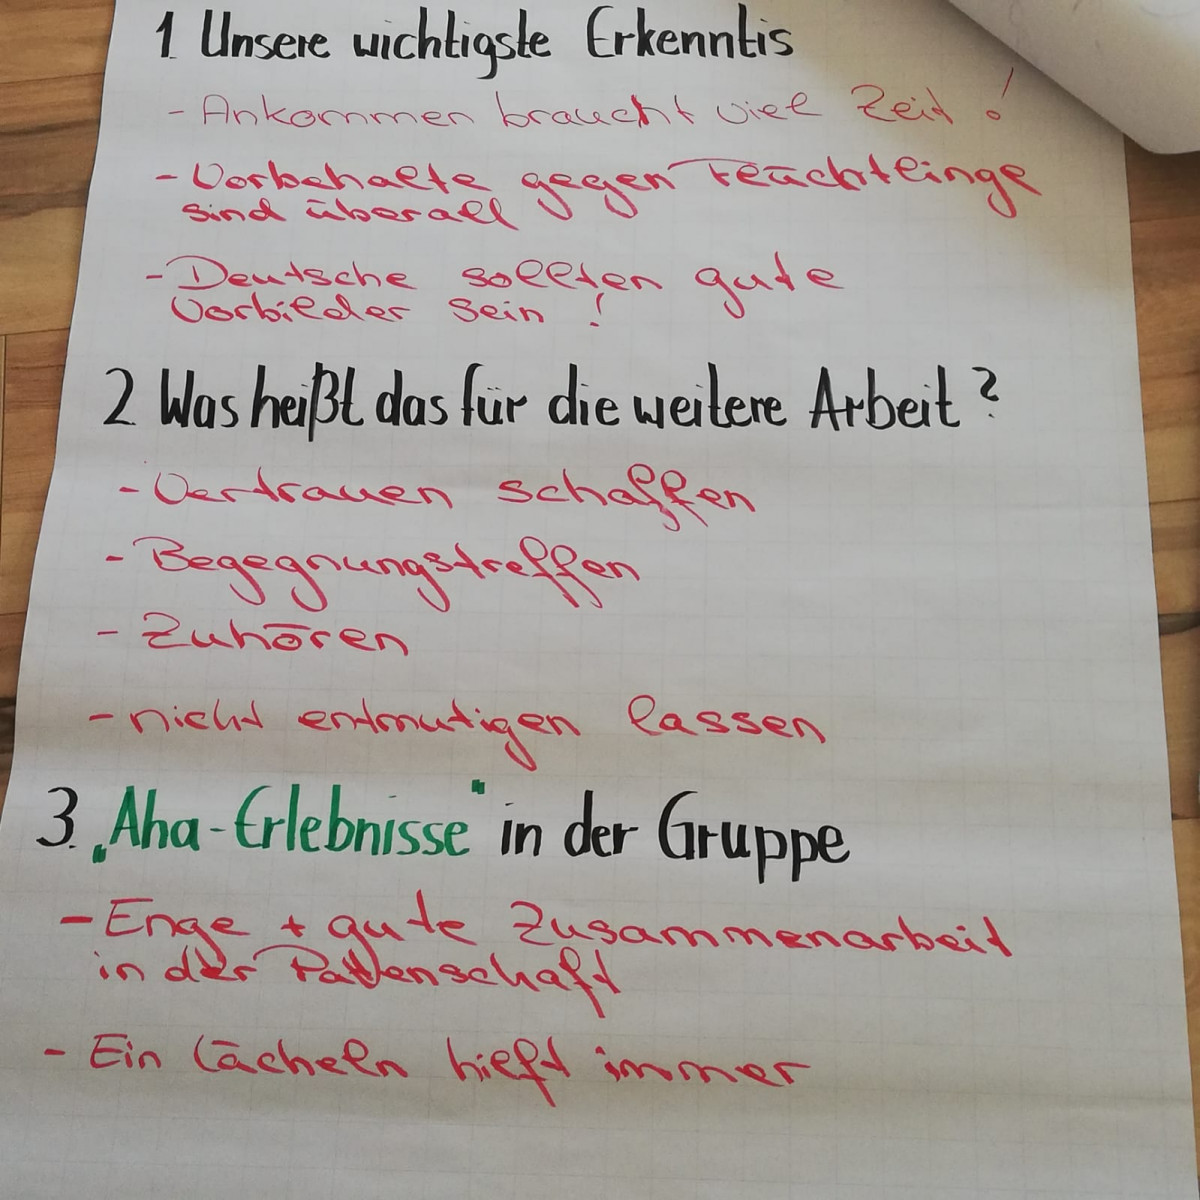 1. Unsere wichtigste Erkenntis
- Ankommen braucht viel Zeit!
- Vorbehalte gegen Fläuchtlinge
sind überall
- Deutsche sollten gute
Vorbilder sein!
2. Was heißt das für die weitere Arbeit?
- Vertrauen schaffen
- Begegnungstreffen
- Zuhören
- nicht entmutigen lassen
3. „Aha-Erlebnisse" in der Gruppe
- Enge + gute Zusammenarbeit
in der Patenschaft
- Ein Lächeln hielft immer